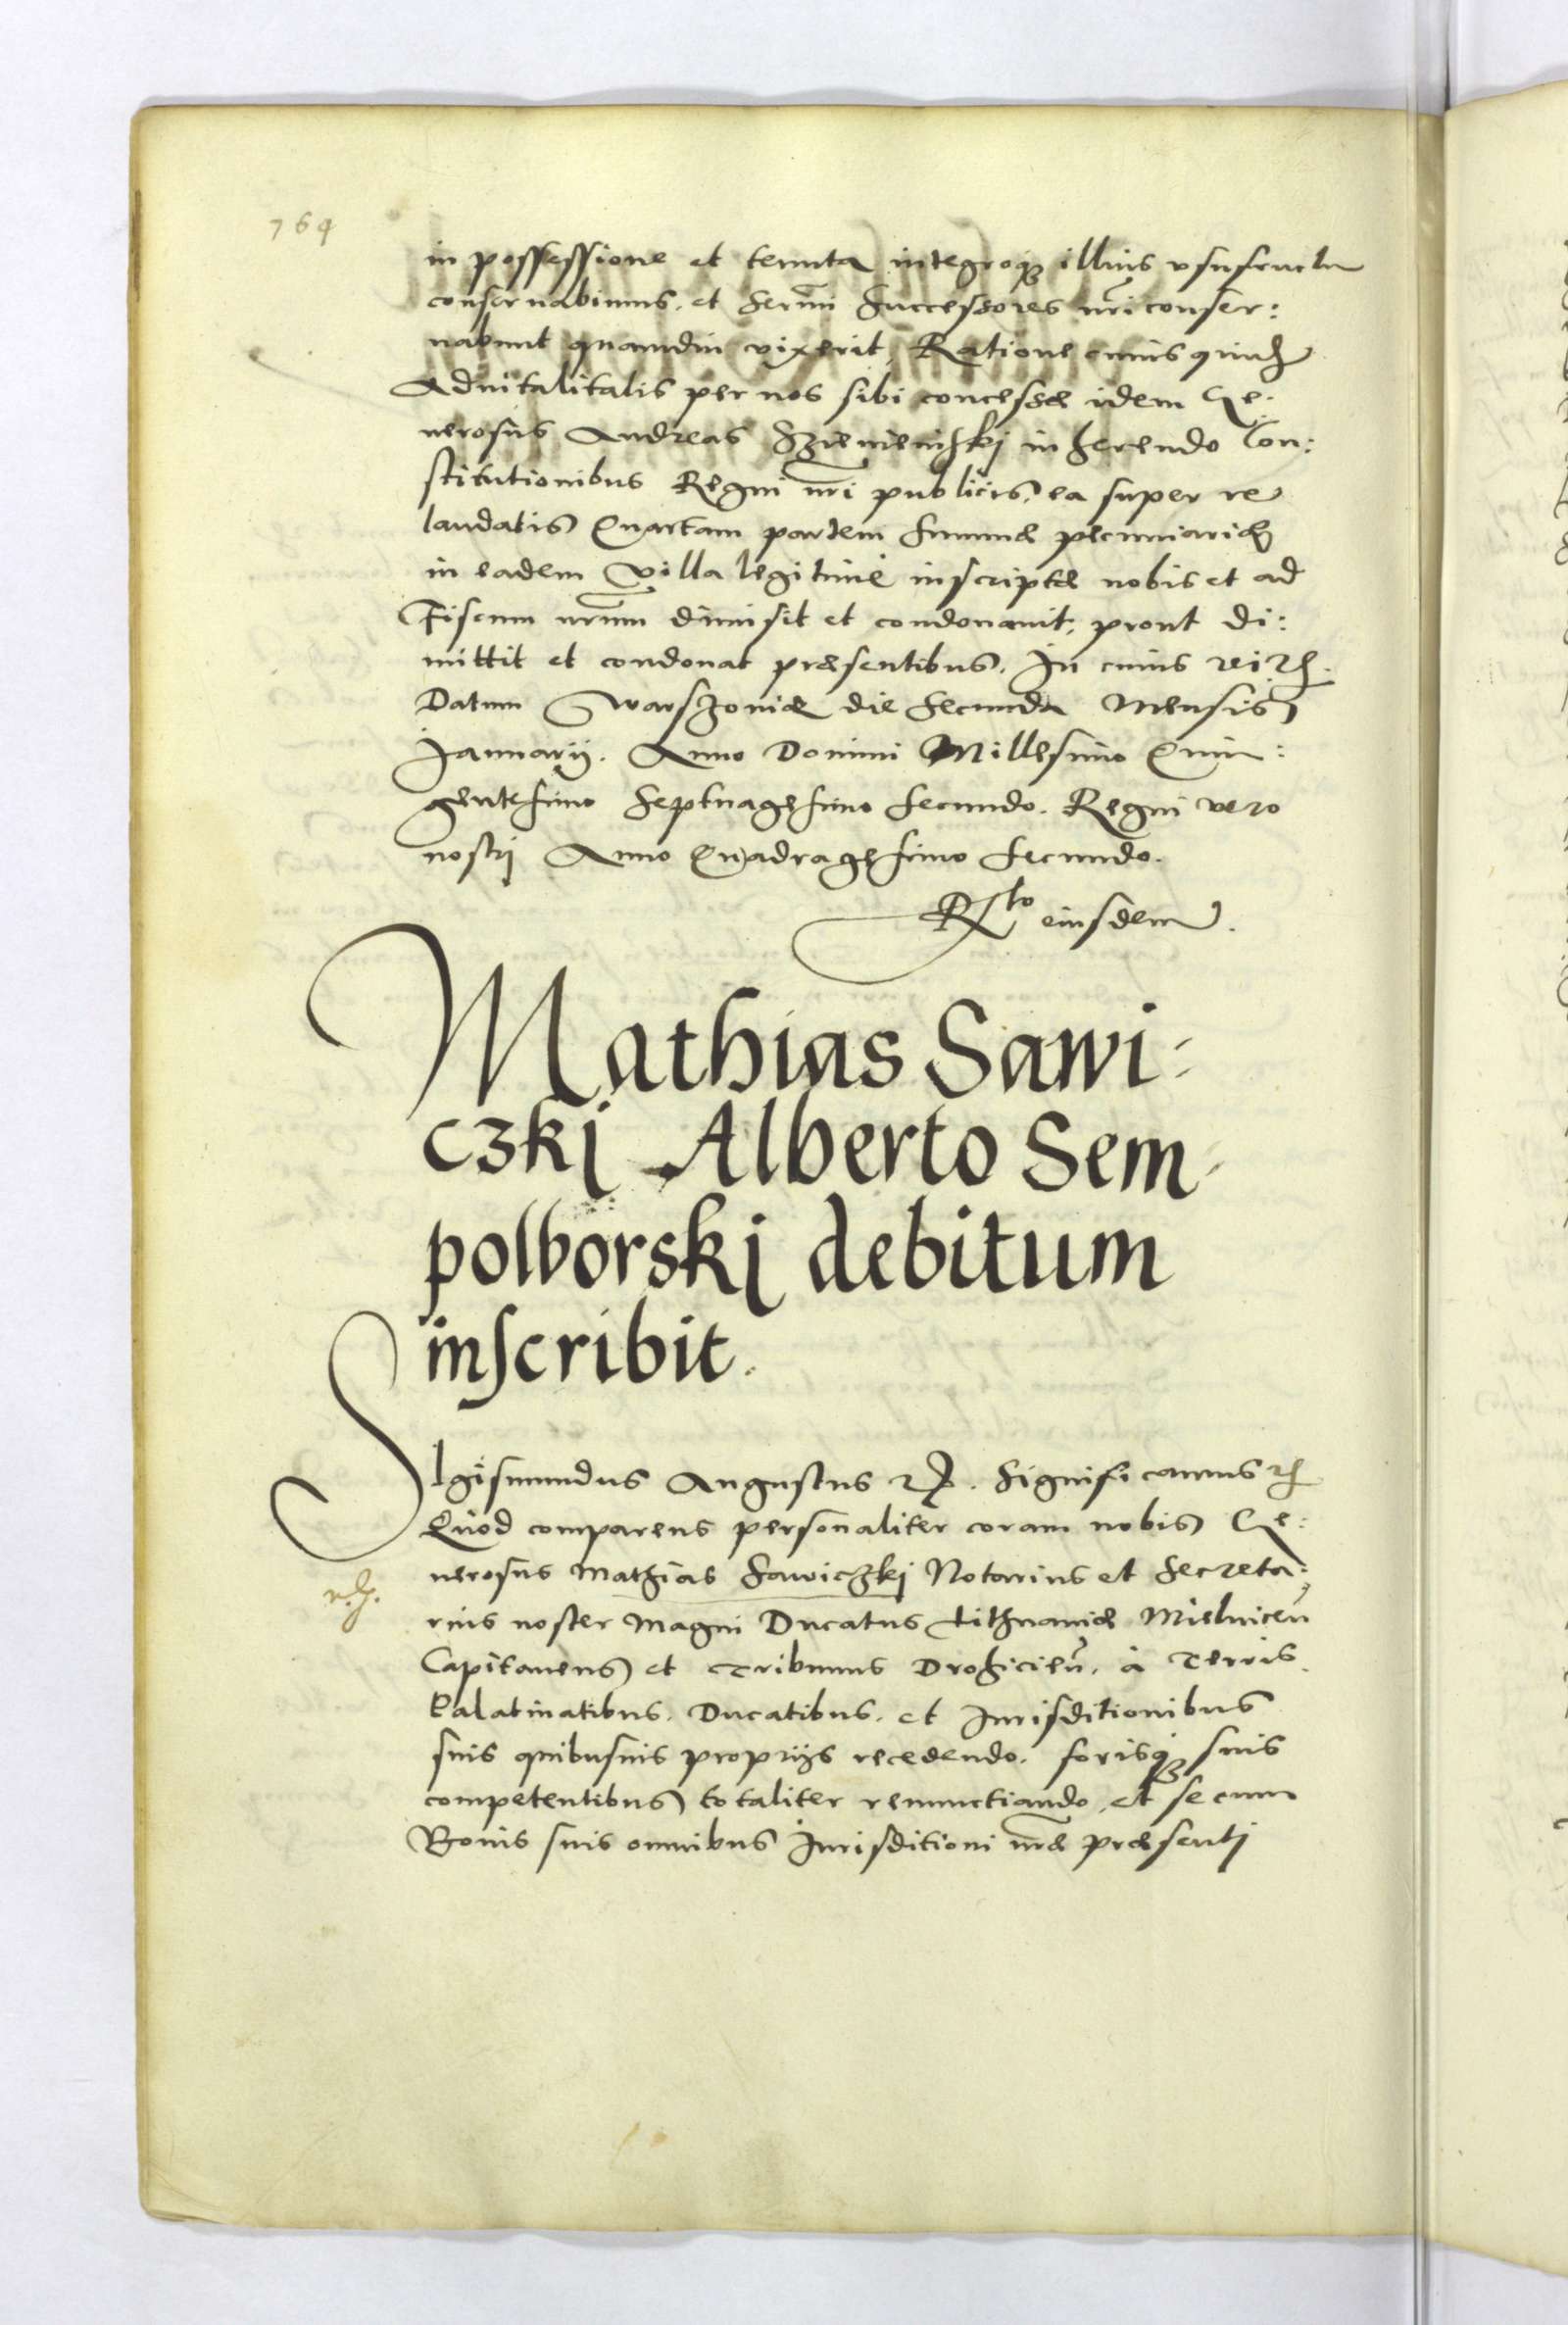 764
in possessione et tenuta integroq3 illius vsufructu
conseruabimus. et Serm̃i Successores nr̃i conser:
uabunt quamdiu vixerit, Ratione cuius quidẽ
Aduitalitatis per nos sibi concessæ idem Ge:
nerosus Andreas inherendo Con:
stitutionibus Regni nr̃i publicis, ea super re
laudatis Quartam partem summæ pecuniariæ
in eadem Villa legitimè inscriptæ nobis et ad
Fiscum nr̃um dimisit et condonauit, prout di:
mittit et condonat præsentibus. In cuius rei &c.
Datum Warszouiæ die secunda Mensis
Januarij. Anno Domini Millesimo Quin:
gentesimo Septuagesimo secundo. Regni vero
nostrj Anno Quadragesimo secundo.
R<sup>to</sup> eiusdem.
Mathias Sawi:
czkj Alberto Sem:
polborskj debitum
inscribit.
SIgismundus Augustus &c. Significamus &c
Quod comparens personaliter coram nobis Ge:
nerosus Mathias Sawiczkj Notarius et Secreta:
rius noster Magni Ducatus Lithuaniæ Mielniceñ
Capitaneus et Tribunus Drohicieñ. à Terris.
Palatinatibus. Ducatibus. et Jurisditionibus
suis quibusuis proprijs recedendo. forisq3 suis
competentibus totaliter renunctiando, et se cum
Bonis suis omnibus Jurisditioni nr̃æ præsentj